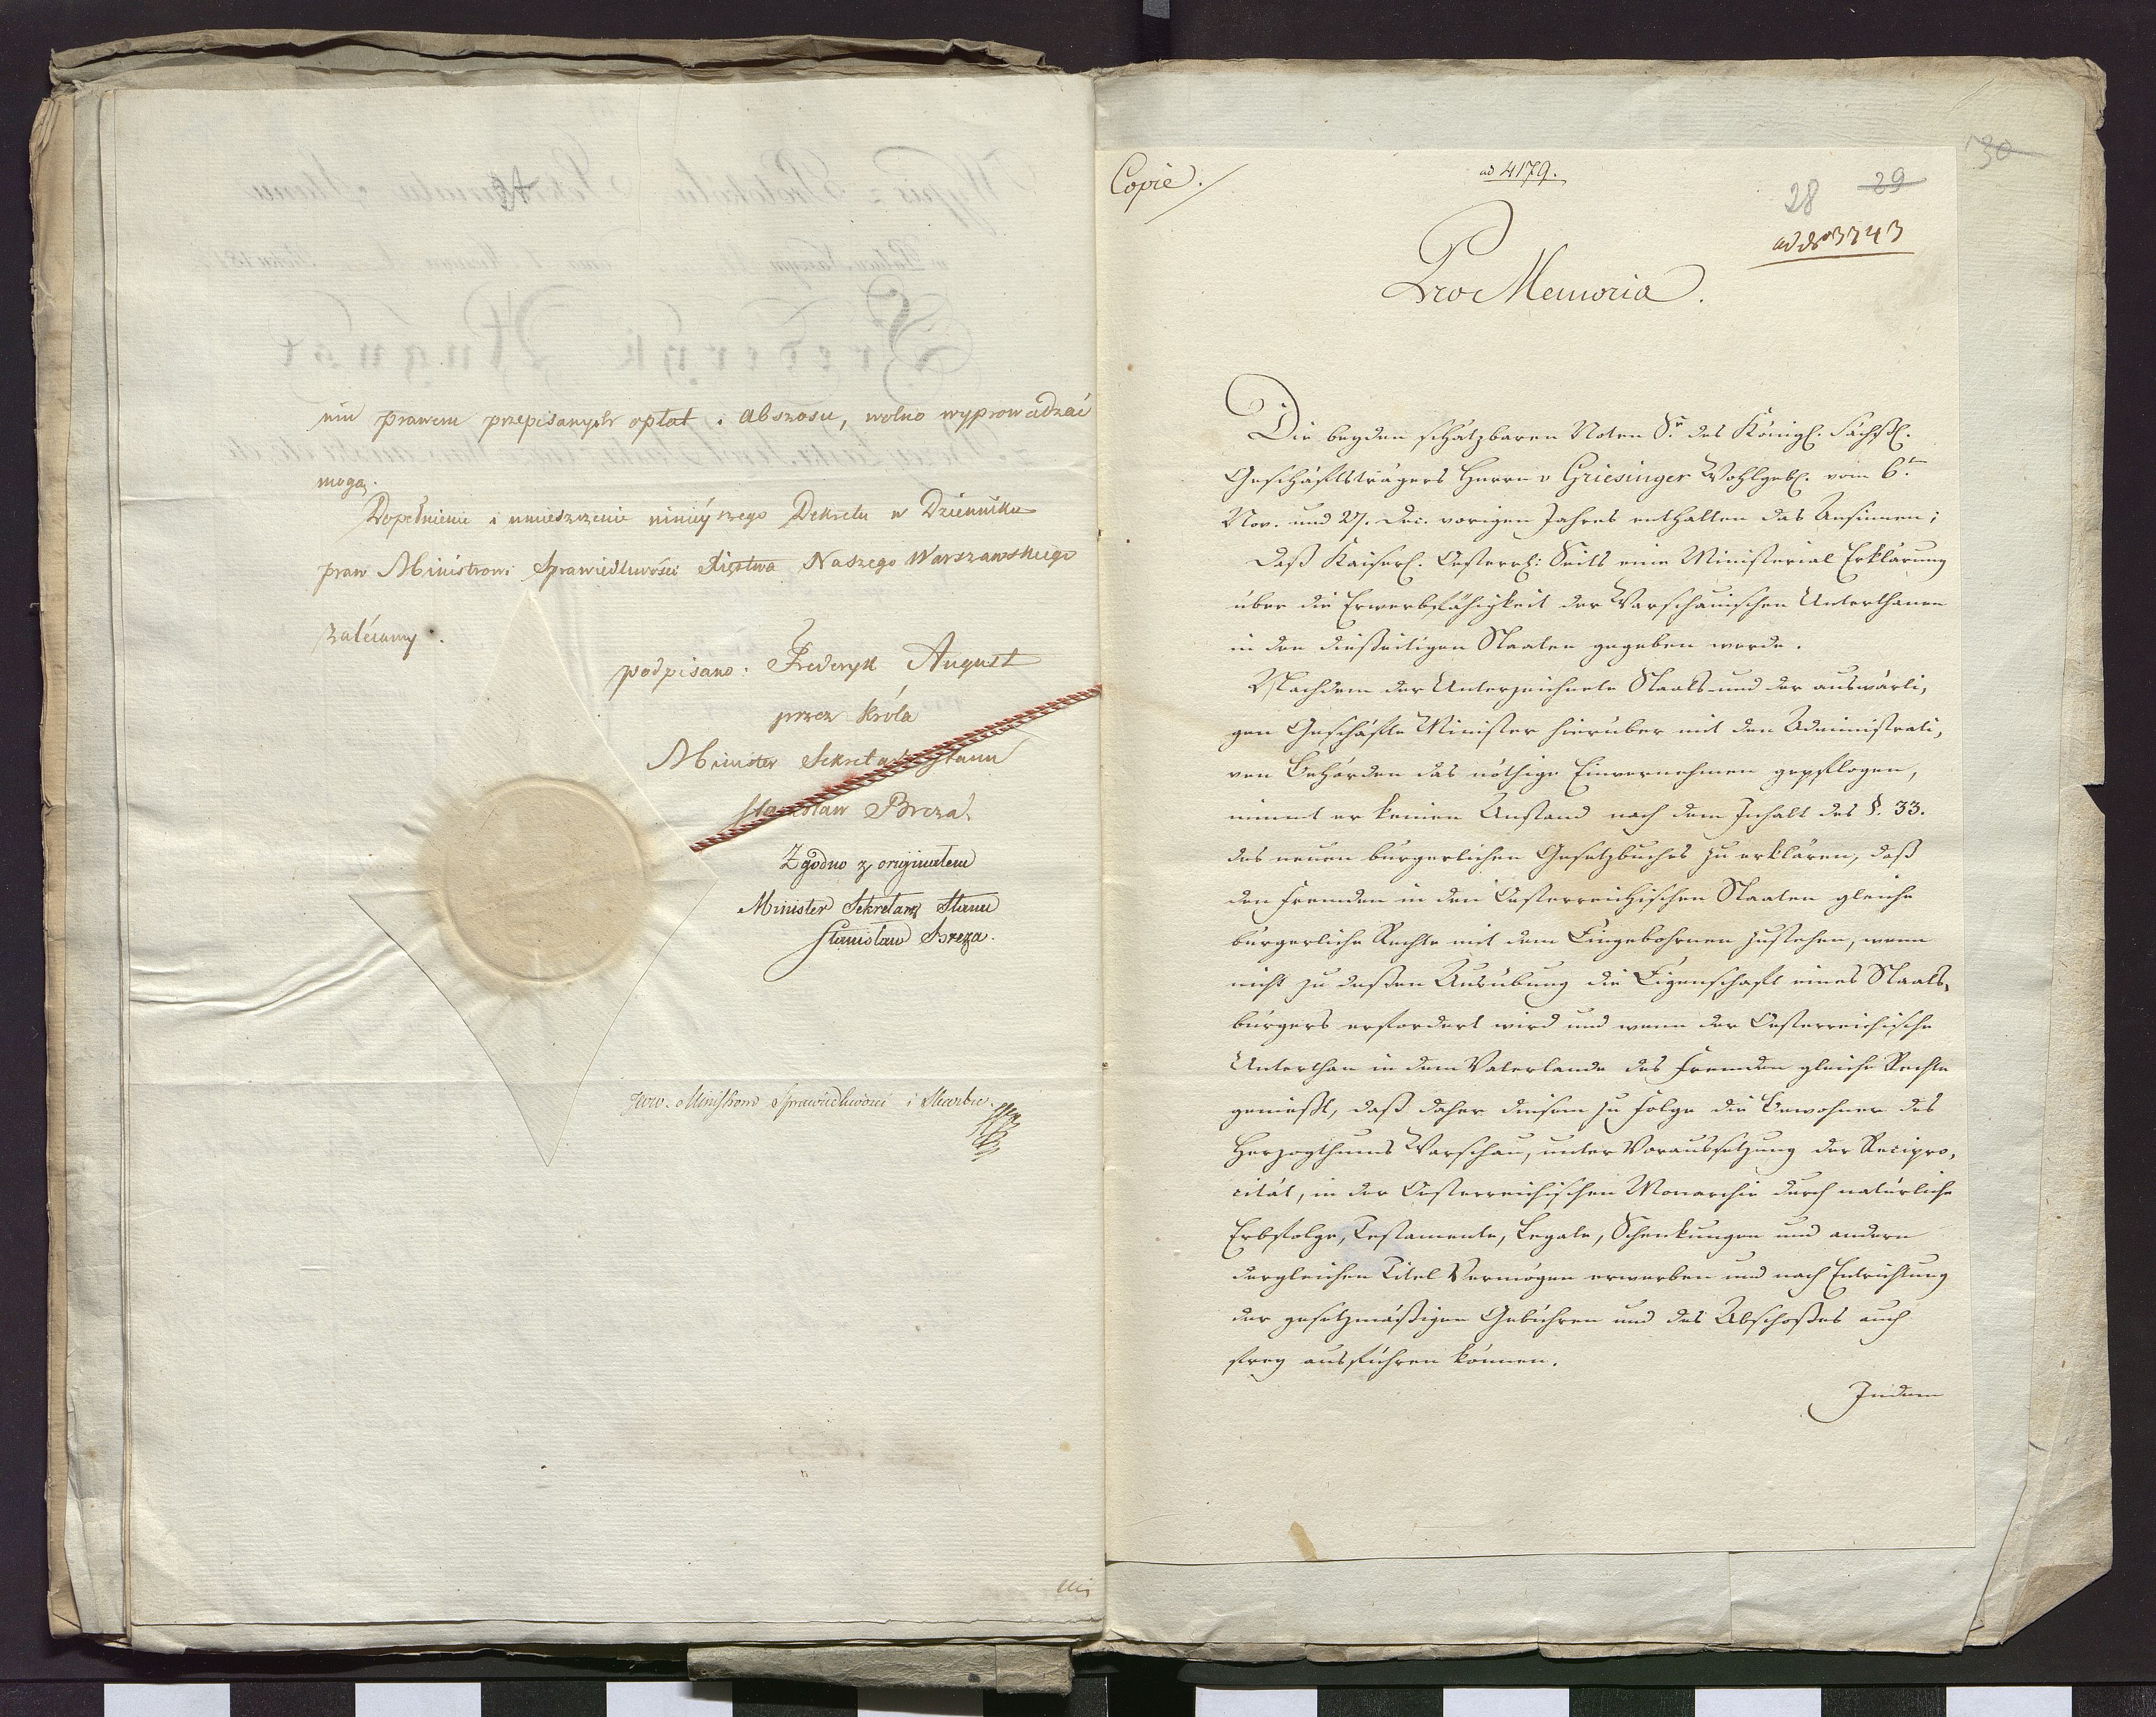 niu prawem przepisanych opłat i abszosu, wolno wyprowadzać
mogą.
Dopełnienie i umieszczenie ninieyszego Dekretu w Dzienniku
praw Ministrowi Sprawiedliwości Xięstwa Naszego Warszawskiego
zalécamy.
podpisano: Frederyk August
przez Króla
Minister Sekretarz Stanu
Stanisław Breza
Zgodno z originałem
Minister Sekretarz Stanu
Stanisław Breza.
JWW. Ministrom Sprawiedliwości i Skarbu.
30
Copie.
ad 4179.
28 29
ad No 3343
Pro Memoria.
Die beyden schätzbaren Noten Sr. des Königl. Sächß.
Geschäftsträgers Herrn v Griesinger Wohlgeb. vom 6tn
Nov. und 27. Dec. vorigen Jahres enthalten das Ansinnen;
daß Kaiserl. Oesterr: Seits eine Ministerial Erklärung
über die Erwerbsfähigkeit der Warschauischen Unterthanen
in den dießeitigen Staaten gegeben werde.
Nachdem der Unterzeichnete Staats- und der auswärti,
gen Geschäfte Minister hierüber mit den Administrati,
ven Behörden das nöthige Einvernehmen gepflogen,
nimmt er keinen Anstand nach dem Inhalt des §. 33.
des neuen bürgerlichen Gesetzbuches zu erklären, daß
den Fremden in den Oesterreichischen Staaten gleiche
bürgerliche Rechte mit dem Eingebohrnen zustehen, wenn
nicht zu deßen Ausübung die Eigenschaft eines Staats,
bürgers erfordert wird und wenn der Oesterreichische
Unterthan in dem Vaterlande des Fremden gleiche Rechte
genießt, daß daher diesem zu Folge die Bewohner des
Herzogthums Warschau, unter Voraussetzung der Recipro,
cität, in der Oesterreichischen Monarchie durch natürliche
Erbfolge, Testamente, Legate, Schenkungen und andere
dergleichen Titel Vermögen erwerben und nach Entrichtung
der gesetzmäßigen Gebühren und des Abschoßes auch
frey ausführen können.
Indem